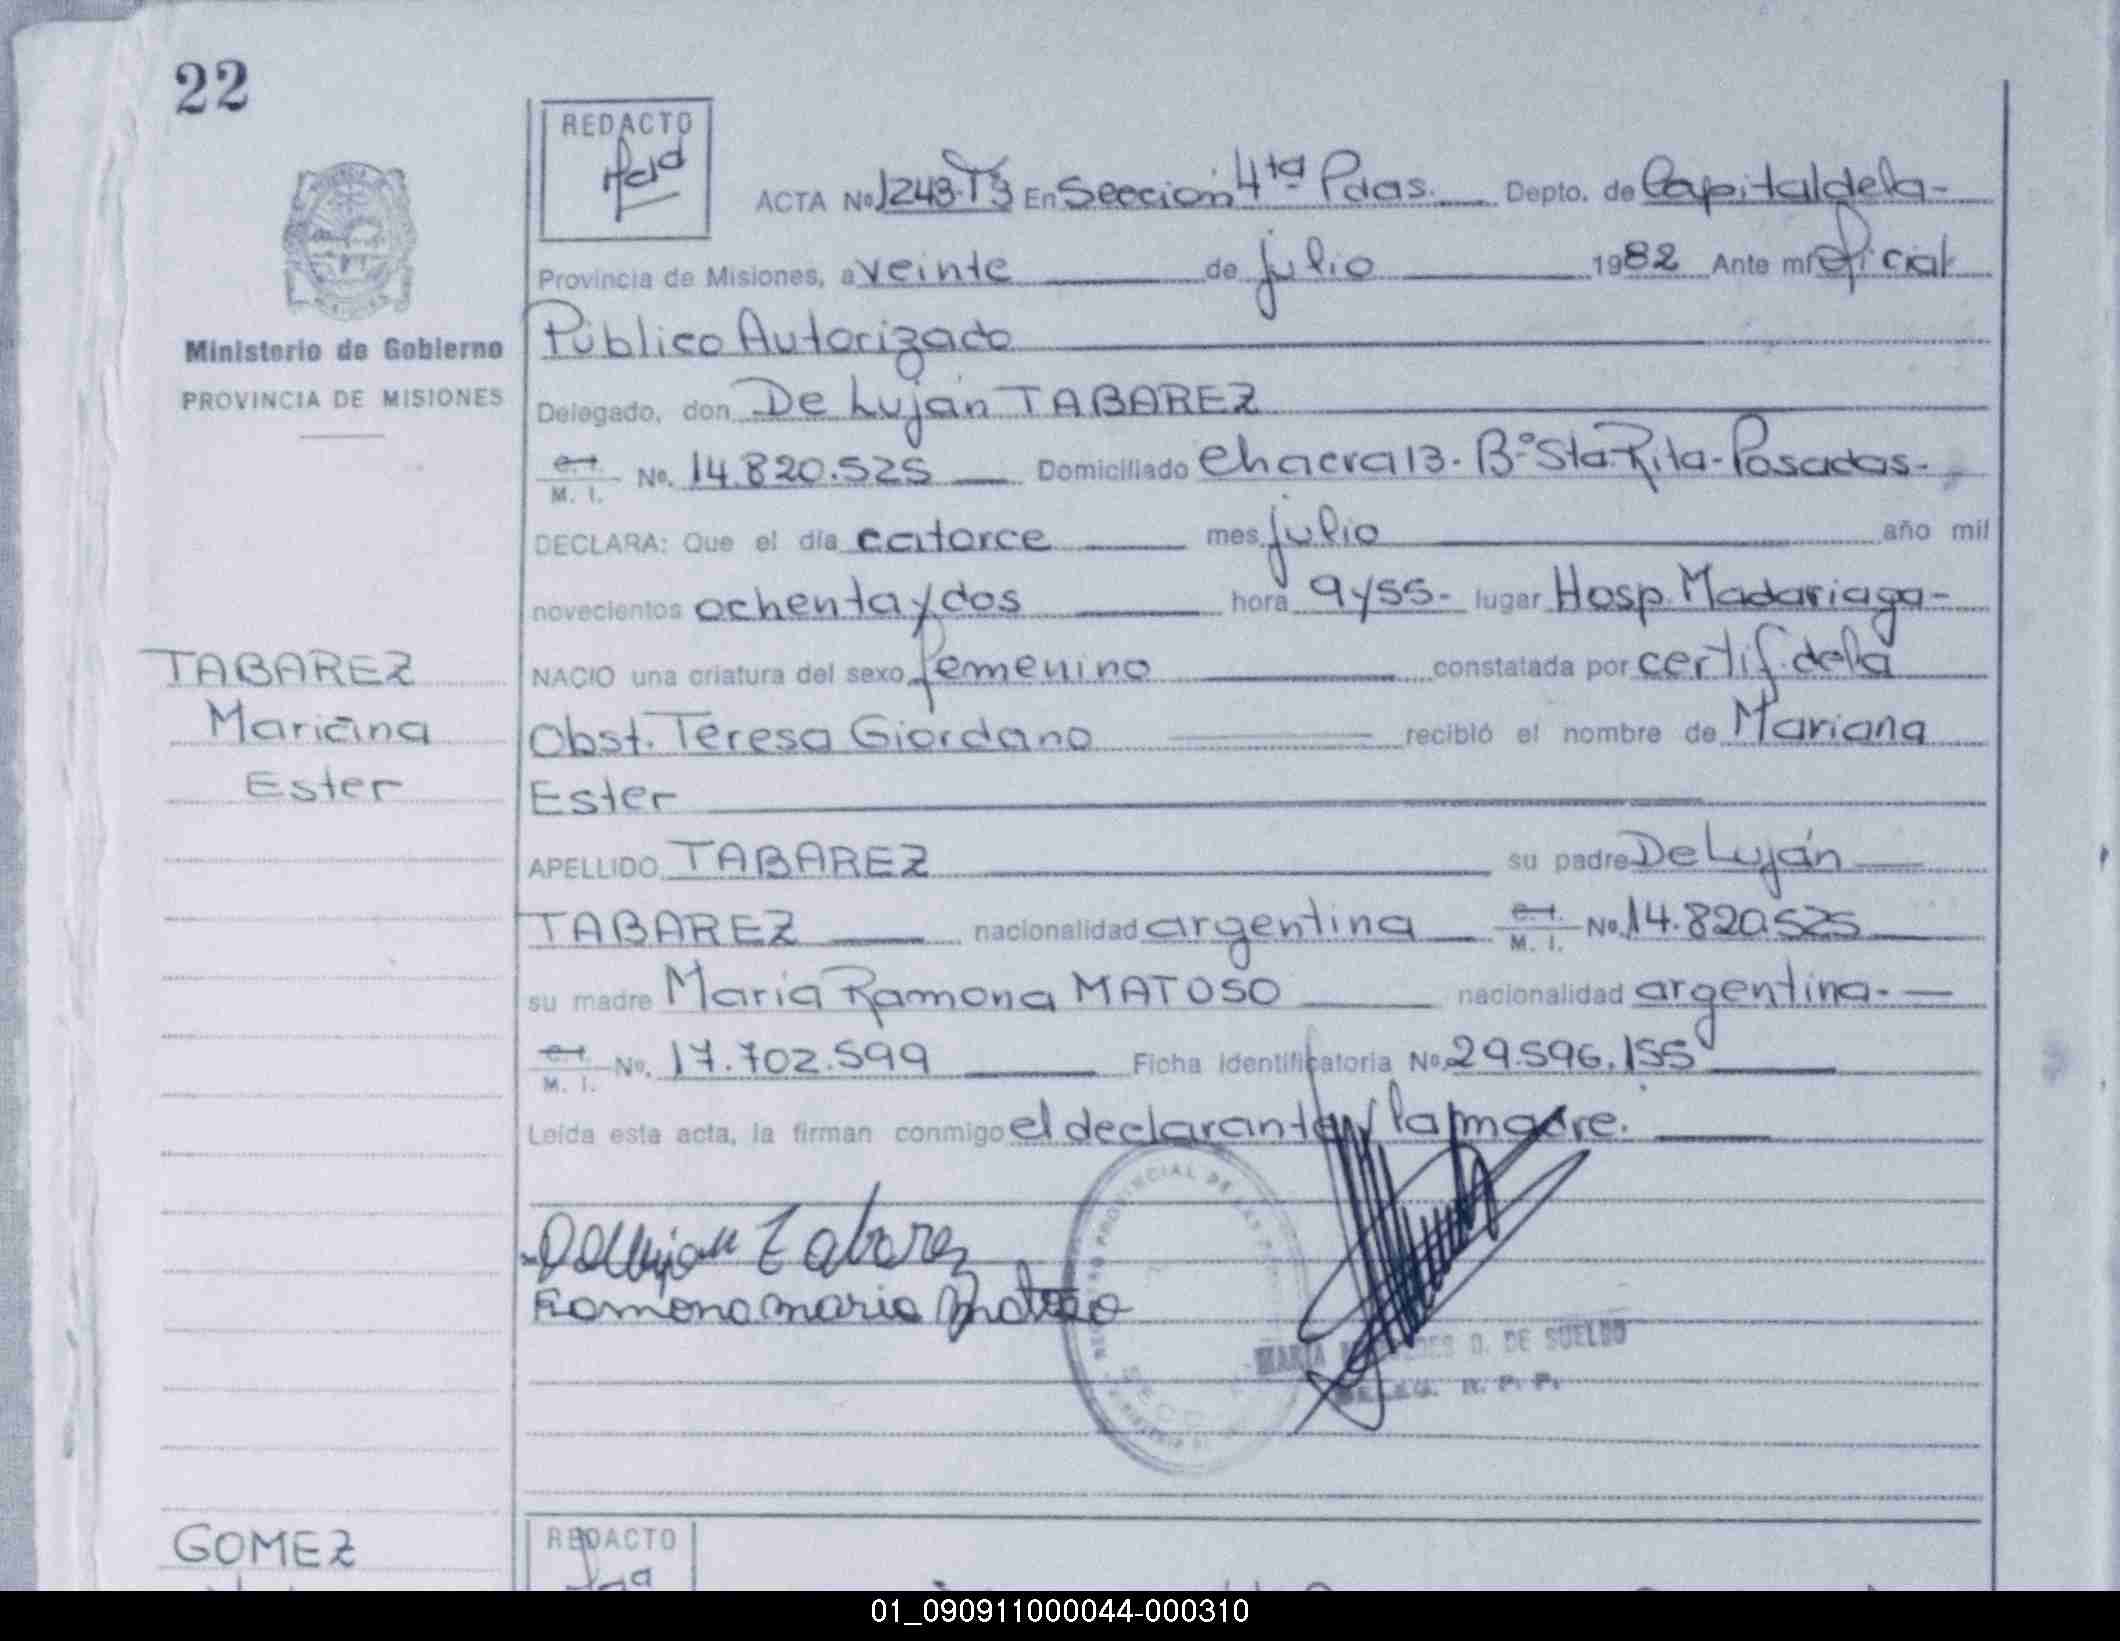 22
REDACTO
ACTA No 1243.T3 En Sección 4ta Pdas. Depto. de Capital de la-
Provincia de Misiones, a veinte de julio 1982 Ante mí oficial
Ministerio de Gobierno
Público Autorizado
PROVINCIA DE MISIONES
Delegado, don De Luján TABAREZ
C. I. M. I. No. 14.820.525 Domiciliado Chacra 13. B° Sta. Rita-Posadas-
DECLARA: Que el día catorce mes julio año mil
novecientos ochenta y dos hora 9 y 55- lugar Hosp. Madariaga-
TABAREZ
NACIO una criatura del sexo femenino constatada por certif. de la
Mariana
Obst. Teresa Giordano recibió el nombre de Mariana
Ester
Ester
APELLIDO TABAREZ su padre De Luján
TABAREZ nacionalidad argentina C. I. M. I. No. 14.820.525
su madre María Ramona MATOSO nacionalidad argentina.-
C. I. M. I. No. 17.702.599 Ficha Identificatoria No. 29.596.155
Leída esta acta, la firman conmigo el declarante y la madre.
Delujan Tabarez
Ramona maria Matoso
REGISTRO PROVINCIAL DE LAS
MARIA MERCEDES D. DE SUELDO
DELEG. R. P. P.
GOMEZ
REDACTO
01_090911000044-000310